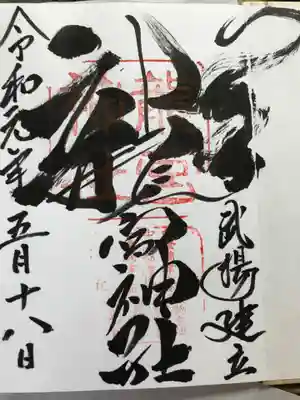 武揚建立
龍宮神社
令和元年五月十八日